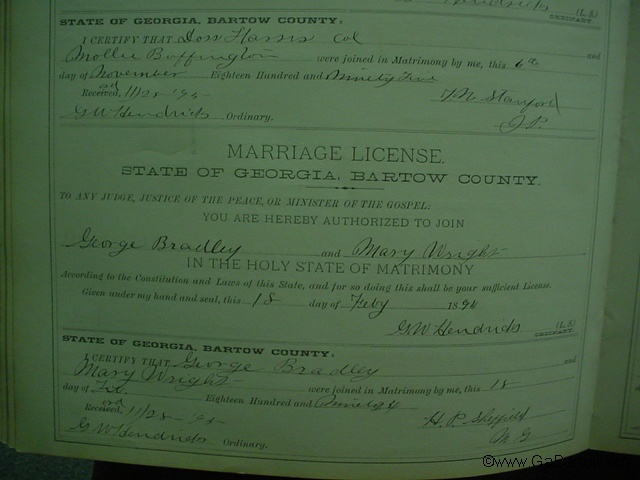 (L.S.)
ORDINARY
STATE OF GEORGIA, BARTOW COUNTY:
I CERTIFY THAT Doss Harris Col and
Mollie Buffington were joined in Matrimony by me, this 6th
day of November Eighteen Hundred and Ninety five
Received, 11/28-'95-
G W Hendricks Ordinary.
J. P.
MARRIAGE LICENSE.
STATE OF GEORGIA, BARTOW COUNTY.
TO ANY JUDGE, JUSTICE OF THE PEACE, OR MINISTER OF THE GOSPEL:
YOU ARE HEREBY AUTHORIZED TO JOIN
George Bradley and Mary Wright
IN THE HOLY STATE OF MATRIMONY
According to the Constitution and Laws of this State, and for so doing this shall be your sufficient License.
Given under my hand and seal, this 18 day of Feby 1894
G W Hendricks (L.S.)
ORDINARY
STATE OF GEORGIA, BARTOW COUNTY:
I CERTIFY THAT George Bradley and
Mary Wright were joined in Matrimony by me, this 18
day of Eighteen Hundred and
Received, 11/28-'95-
G W Hendricks Ordinary.
H. P. Sheffield
M G
©www.Ga